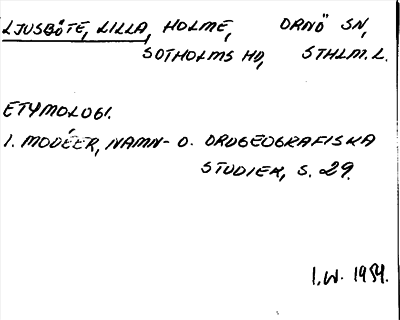 LJUSBÖTE, LILLA, HOLME, ORNÖ SN,
SOTHOLMS HD, STHLM. L.
ETYMOLOGI.
I. MODÉER, NAMN- O. ORDGEOGRAFISKA
STUDIER, S. 29.
I.W. 1954.